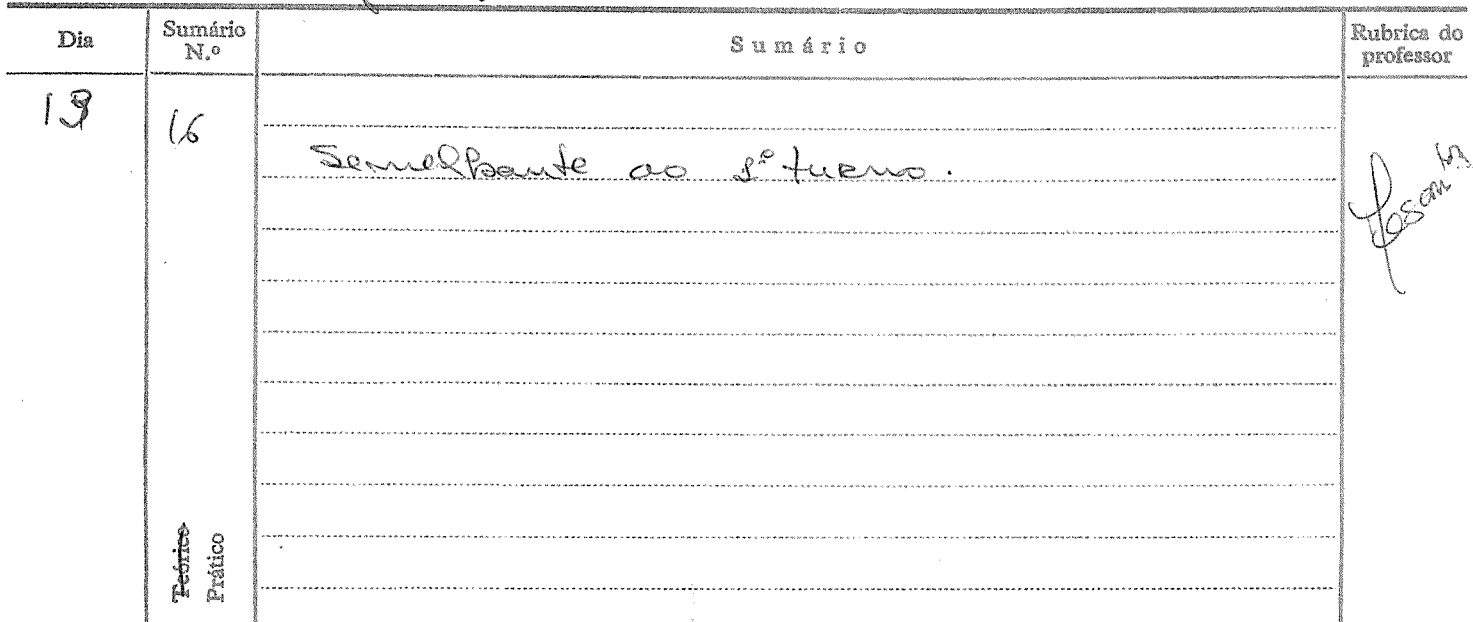 Dia
Sumário N.º
Sumário
Rubrica do professor
16
Semelhante ao 1º turno.
Teórico
Prático